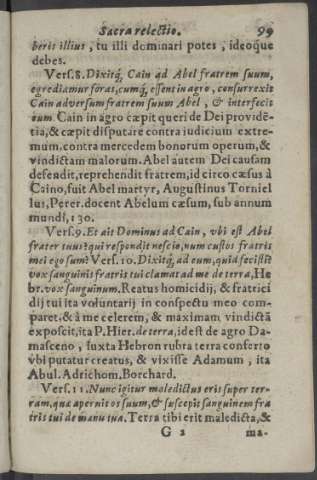 Sacra relectio. 99
beris illius, tu illi dominari potes, ideoque
debes.
Vers. 8. Dixitq́, Cain ad Abel fratrem suum,
egrediamur foras, cumq́, essent in agro, consurrexit
Cain adversum fratrem suum Abel, & interfecit
eum. Cain in agro cæpit queri de Dei providẽ-
tia, & cæpit disputare contra iudicium extre-
mum, contra mercedem bonorum operum, &
vindictam malorum. Abel autem Dei causam
defendit, reprehendit fratrem, id circo cæsus à
Caino, fuit Abel martyr, Augustinus Torniel
lus, Perer. docent Abelum cæsum, sub annum
mundi, 130.
Vers. 9. Et ait Dominus ad Cain, vbi est Abel
frater tuus? qui respondit nescio, num custos fratris
mei ego sum? Vers. 10. Dixitq́, ad eum, quid fecisti?
vox sanguinis fratris tui clamat ad me de terra, He
br. vox sanguinum. Reatus homicidij, & fratrici
dij tui ita voluntarij in conspectu meo com-
paret, & à me celerem, & maximam vindictã
exposcit, ita P. Hier. de terra, id est de agro Da-
masceno, iuxta Hebron rubra terra conferto
vbi putatur creatus, & vixisse Adamum, ita
Abul. Adrichom. Borchard.
Vers. 11. Nunc igitur maledictus eris super ter-
ram, quæ aperuit os suum, & suscepit sanguinem fra
tris tui de manu tua. Terra tibi erit maledicta, &
G 2 ma-